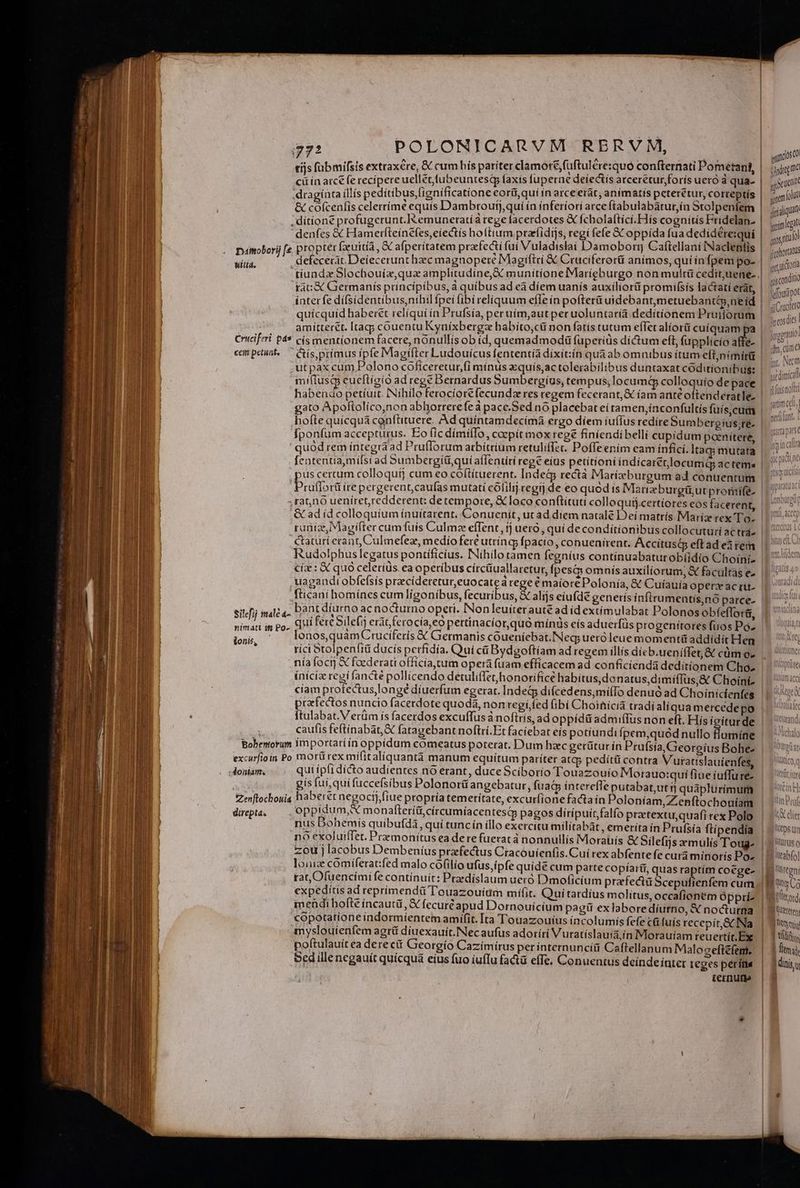 772 POLONICARVM RERVM,
eijs submissis extraxêre, & cum his pariter clamorẽ, sustulêre: quo consternati Pomerani,
cũ in arcẽ se recipere uellẽt, subeuntesq; saxis supernè deiectis arcerẽtur, foris uerò à qua-
draginta illis peditibus, significatione eorũ, qui in arce erãt, animatis peterẽtur, correptis
& cõscensis celerrimè equis Dambrouij, qui in inferiori arce stabulabãtur, in Stolpensem
ditionẽ profugerunt. Remunerati à rege sacerdotes & scholastici. His cognitis Fridelan-
denses & Hamersteinẽses, eiectis hostium præsidijs, regi sese & oppida sua dedidêre: qui
Damoborij se propter sæuitiã, & asperitatem præfecti sui Vladislai Damoborij Castellani Naclensis
uitia. defecerãt. Deiecerunt hæc magnoperè Magistri & Cruciferorũ animos, qui in spem po-
tiundæ Slochouiæ, quæ amplitudine, & munitione Mariẽburgo non multũ cedit, uene-
rãt: & Germanis principibus, à quibus ad eã diem uanis auxiliorũ promissis lactati erãt,
inter se dissidentibus, nihil spei sibi reliquum esse in posterũ uidebant, metuebantq;, ne id
quicquid haberẽt reliqui in Prussia, per uim, aut per uoluntariã deditionem Pruſsorum
amitterẽt. Itaq; cõuentu Kynixbergæ habito, cũ non satis tutum esset aliorũ cuiquam pa
Cruciferi pa- cis mentionem facere, nõnullis ob id, quemadmodũ superiùs dictum est, supplicio affe-
cem petunt. ctis, primus ipse Magister Ludouicus sententiã dixit: in quã ab omnibus itum est, nimirũ
ut pax cum Polono cõficeretur, si minùs æquis, ac tolerabilibus duntaxat cõditionibus:
missusq; è uestigio ad regẽ Bernardus Sumbergius, tempus, locumq; colloquio de pace
habendo petiuit. Nihilo ferociorẽ secundæ res regem fecerant, & iam antè ostenderat le-
gato Apostolico, non abhorrere se à pace. Sed nõ placebat ei tamen, inconsultis suis, cum
hoste quicquã constituere. Ad quintamdecimã ergo diem iussus redire Sumbergius, re-
sponsum accepturus. Eo sic dimisso, cœpit mox regẽ finiendi belli cupidum pœnitere,
quòd rem integrã ad Prussorum arbitrium retulisset. Posse enim eam infici. Itaq; mutata
sententia, missi ad Sumbergiũ, qui assentiri regẽ eius petitioni indicarẽt, locumq; ac tem-
pus certum colloquij cum eo cõstituerent. Indeq; rectà Mariæburgum ad conuentum
Prussorũ ire pergerent, causas mutati cõsilij regij de eo quòd is Mariæburgũ, ut promise-
rat, nõ uenirẽt, redderent: de tempore, & loco constituti colloquij certiores eos facerent,
& ad id colloquium inuitarent. Conuenit, ut ad diem natalẽ Dei matris Mariæ rex To-
runiæ, Magister cum suis Culmæ essent, ij uerò, qui de conditionibus collocuturi ac tra-
ctaturi erant, Culmsêæ, medio ferè utrinq; spacio, conuenirent. Accitusq; est ad eã rem
Rudolphus legatus pontificius. Nihilo tamen segniùs continuabatur obsidio Choini-
ciæ: & quò celeriùs ea operibus circũuallaretur, spesq; omnis auxiliorum, & facultas e-
uagandi obsessis præcideretur, euocatę à rege è maiorẽ Polonia, & Cuiauia operæ ac ru-
sticani homines cum ligonibus, securibus, & alijs eiusdẽ generis instrumentis, nõ parce-
Silesij malè a- bant diurno ac nocturno operi. Non leuiter autẽ ad id exstimulabat Polonos obsessorũ,
nimati in Po- qui ferè Silesij erãt, ferocia, eò pertinacior, quò minùs eis aduersùs progenitores suos Po-
lonis, lonos, quàm Cruciferis & Germanis cõueniebat. Neq; uerò leue momentũ addidit Hen
rici Stolpensiũ ducis perfidia. Qui cũ Bydgostiam ad regem illis dieb. uenisset, & cũm o-
nia socij & fœderati officia, tum operã suam efficacem ad conficiendã deditionem Cho-
iniciæ regi sanctè pollicendo detulisset, honorificè habitus, donatus, dimissus, & Choini-
ciam profectus, longè diuersum egerat. Indeq; discedens, misso denuò ad Choinicienses
præfectos nuncio sacerdote quodã, non regi, sed sibi Choiniciã tradi aliqua mercede po
stulabat. Verùm is sacerdos excussus à nostris, ad oppidũ admissus non est. His igitur de
causis festinabãt, & satagebant nostri. Et faciebat eis potiundi spem, quòd nullo flumine
Bohemorum importari in oppidum cõmeatus poterat. Dum hæc gerũtur in Prussia, Georgius Bohe-
excursio in Po morũ rex misit aliquantã manum equitum pariter atq; peditũ contra Vratislauienses,
loniam. qui ipsi dicto audientes nõ erant, duce Sciborio Touazouio Morauo: qui siue iussu re-
gis sui, qui successibus Polonorũ angebatur, suaq; interesse putabat, ut ij quãplurimum
Zenstochouia haberẽt negocij, siue propria temeritate, excursione facta in Poloniam, Zenstochouiam
direpta. oppidum, & monasteriũ, circumiacentesq; pagos diripuit, falso prætextu, quasi rex Polo
nus Bohemis quibusdã, qui tunc in illo exercitu militabãt, emerita in Prussia stipendia
nõ exoluisset. Præmonitus ea de re fuerat à nonnullis Morauis & Silesijs æmulis Toua-
zouij Iacobus Dembenius præfectus Cracouiensis. Cui rex absente se curã minoris Po-
loniæ cõmiserat: sed malo cõsilio usus, ipse quidẽ cum parte copiarũ, quas raptim coẽge-
rat, Osuencimi se continuit: Prædislaum uerò Dmosicium præfectũ Scepusiensem cum
expeditis ad reprimendũ Touazouium misit. Qui tardiùs molitus, occasionem oppri-
mendi hostẽ incautũ, & securẽ apud Dornouicium pagũ ex labore diurno, & nocturna
cõpotatione indormientem amisit. Ita Touazouius incolumis sese cũ suis recepit, & Na
myslouiensem agrũ diuexauit. Nec ausus adoriri Vratislauiã, in Morauiam reuertit. Ex
postulauit ea de re cũ Georgio Cazimirus per internunciũ Castellanum Malogestẽsem.
Sed ille negauit quicquã eius suo iussu factũ esse. Conuentus deinde inter reges per ins
ternun-